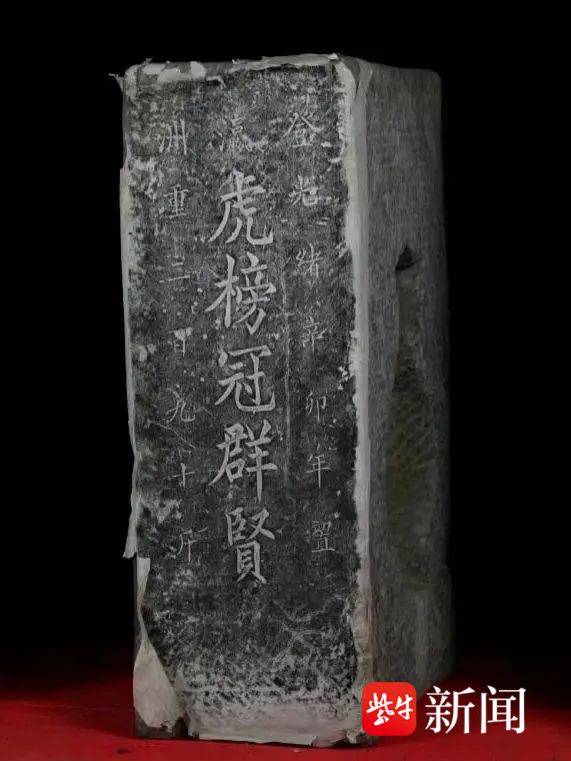 登瀛洲
光緒辛卯年置
虎榜冠群賢
重二百九十斤
紫牛新闻